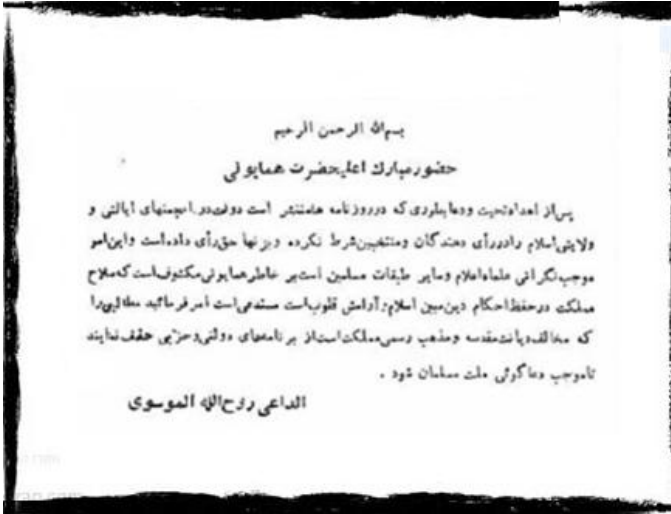 بسم‌الله الرحمن الرحیم
حضور مبارك اعلیحضرت همایونی
پس‌از اهداءتحیت ودعابطوری که درروزنامه هامنتشر است دولت‌در انجمنهای ایالتی و
ولایتی‌اسلام رادررأی دهندگان ومنتخبین‌شرط نکرده وبزنها حق‌رأی داده‌است واین‌امر
موجب‌نگرانی علماءاعلام وسایر طبقات مسلمین است‌بر خاطرهمایونی‌مکشوف‌است که‌صلاح
مملکت درحفظ‌احکام دین‌مبین اسلام وآرامش قلوب‌است مستدعی‌است امرفرمائید مطالبی‌را
که مخالف‌دیانت‌مقدسه ومذهب رسمی‌مملکت‌است‌از برنامه‌های دولتی‌وحزبی حذف‌نمایند
تاموجب دعاگوئی ملت مسلمان شود .
الداعی روح‌الله الموسوی